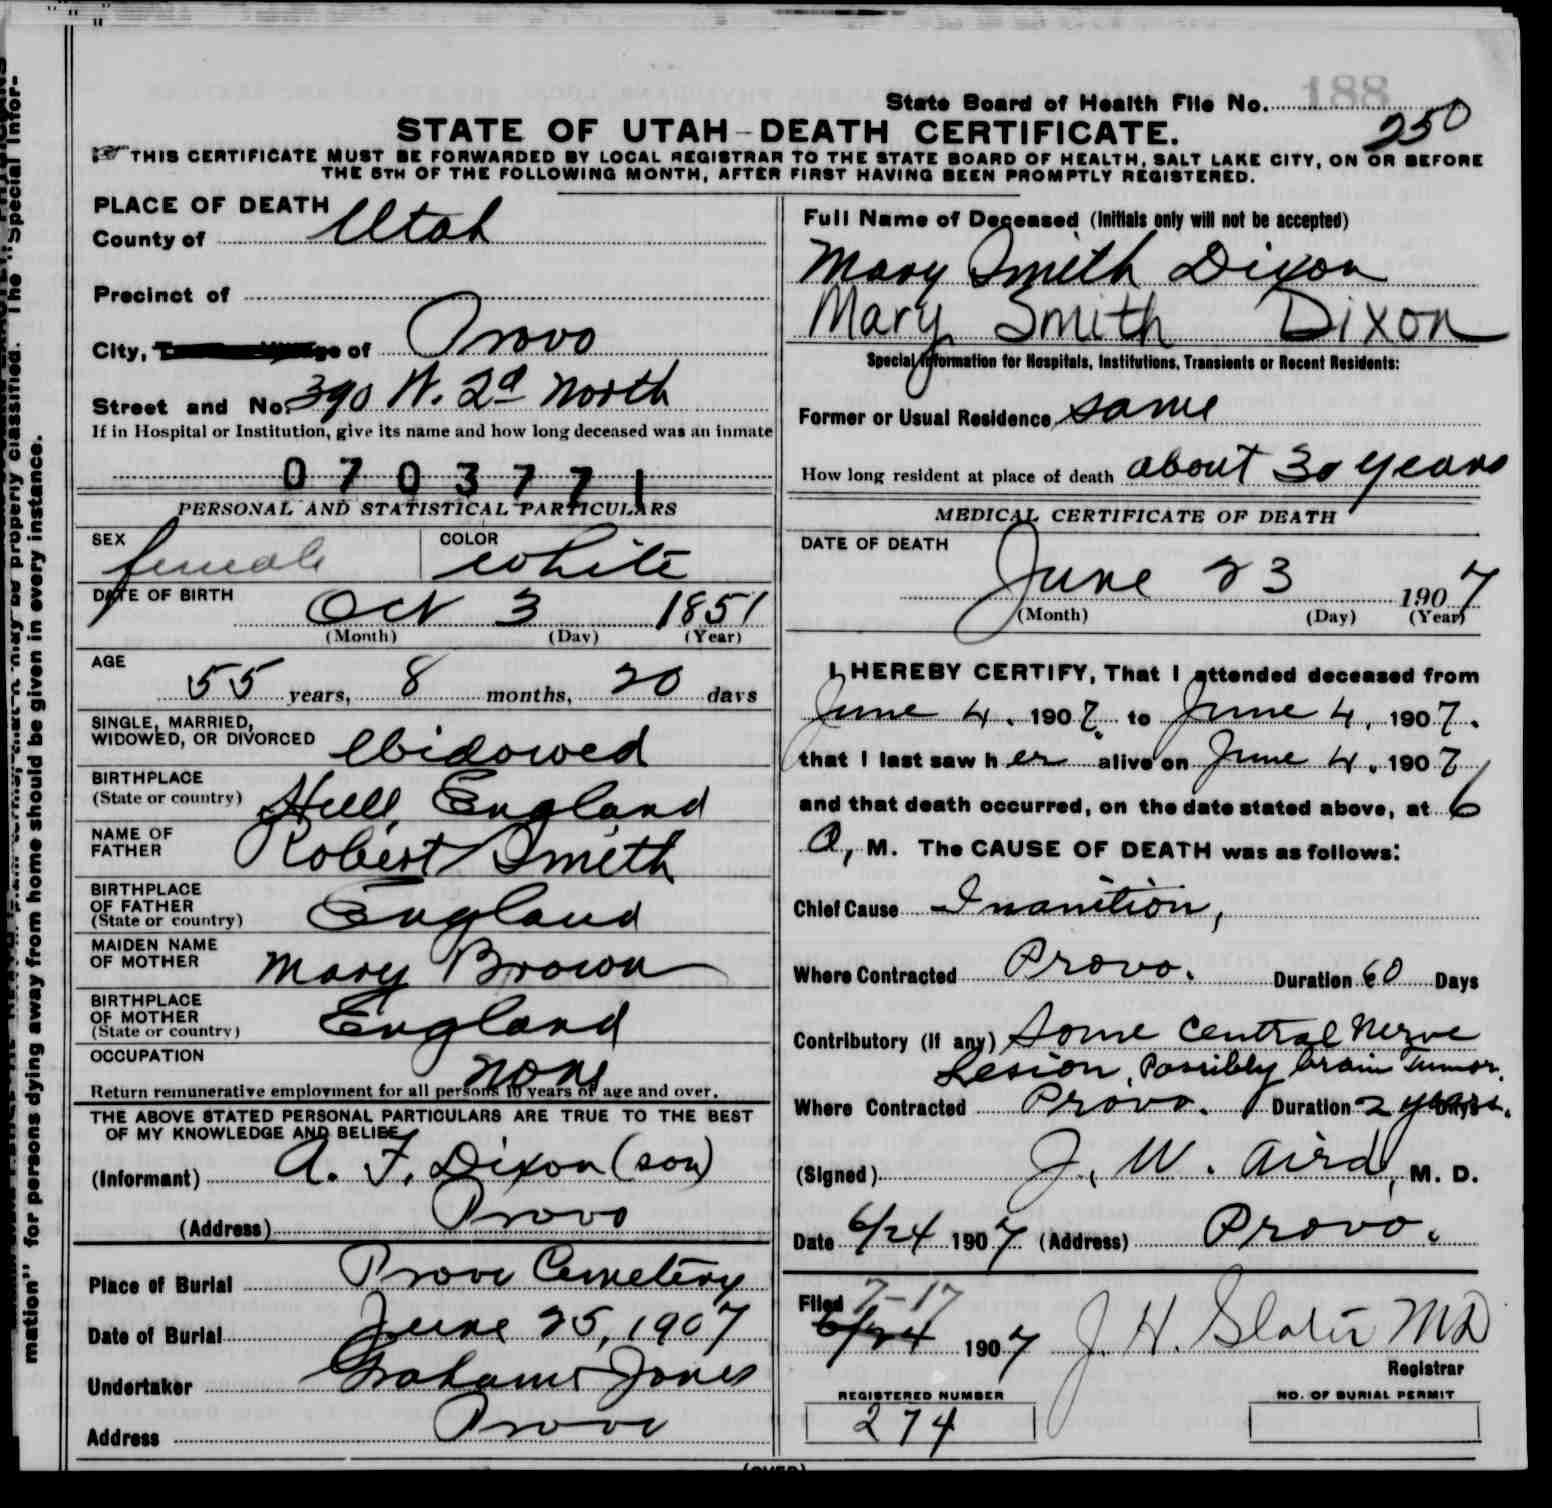 188
State Board of Health File No. 250
STATE OF UTAH-DEATH CERTIFICATE.
THIS CERTIFICATE MUST BE FORWARDED BY LOCAL REGISTRAR TO THE STATE BOARD OF HEALTH, SALT LAKE CITY, ON OR BEFORE
THE 5TH OF THE FOLLOWING MONTH, AFTER FIRST HAVING BEEN PROMPTLY REGISTERED.
PLACE OF DEATH
County of Utah
Precinct of
City, of Provo
Street and No. 390 W. 2d North
If in Hospital or Institution, give its name and how long deceased was an inmate
0703771
PERSONAL AND STATISTICAL PARTICULARS
SEX female COLOR white
DATE OF BIRTH Oct 3 1851
(Month) (Day) (Year)
AGE 55 years, 8 months, 20 days
SINGLE, MARRIED,
WIDOWED, OR DIVORCED Widowed
BIRTHPLACE
(State or country) Hull, England
NAME OF
FATHER Robert Smith
BIRTHPLACE
OF FATHER
(State or country) England
MAIDEN NAME
OF MOTHER Mary Brown
BIRTHPLACE
OF MOTHER
(State or country) England
OCCUPATION none
Return remunerative employment for all persons 10 years of age and over.
THE ABOVE STATED PERSONAL PARTICULARS ARE TRUE TO THE BEST
OF MY KNOWLEDGE AND BELIEF
(Informant) A. F. Dixon (son)
(Address) Provo
Place of Burial Provo Cemetery
Date of Burial June 25, 1907
Undertaker Graham & Jones
Address Provo
Full Name of Deceased (Initials only will not be accepted)
Mary Smith Dixon
Mary Smith Dixon
Special Information for Hospitals, Institutions, Transients or Recent Residents:
Former or Usual Residence same
How long resident at place of death about 30 years
MEDICAL CERTIFICATE OF DEATH
DATE OF DEATH
June 23 1907
(Month) (Day) (Year)
I HEREBY CERTIFY, That I attended deceased from
June 4, 1907. to June 4, 1907.
that I last saw her alive on June 4, 1907
and that death occurred, on the date stated above, at 6
A, M. The CAUSE OF DEATH was as follows:
Chief Cause Inanition,
Where Contracted Provo. Duration 60 Days
Contributory (if any) Some Central Nerve
Lesion, Possibly brain Tumor.
Where Contracted Provo. Duration 2 years.
(Signed) J. W. Aird, M. D.
Date 6/24 1907 (Address) Provo.
Filed 7-17
6/24 1907 J. H. Slater MD
Registrar
REGISTERED NUMBER
274
NO. OF BURIAL PERMIT
(OVER)
mation" for persons dying away from home should be given in every instance.
properly classified. The "Special Infor-